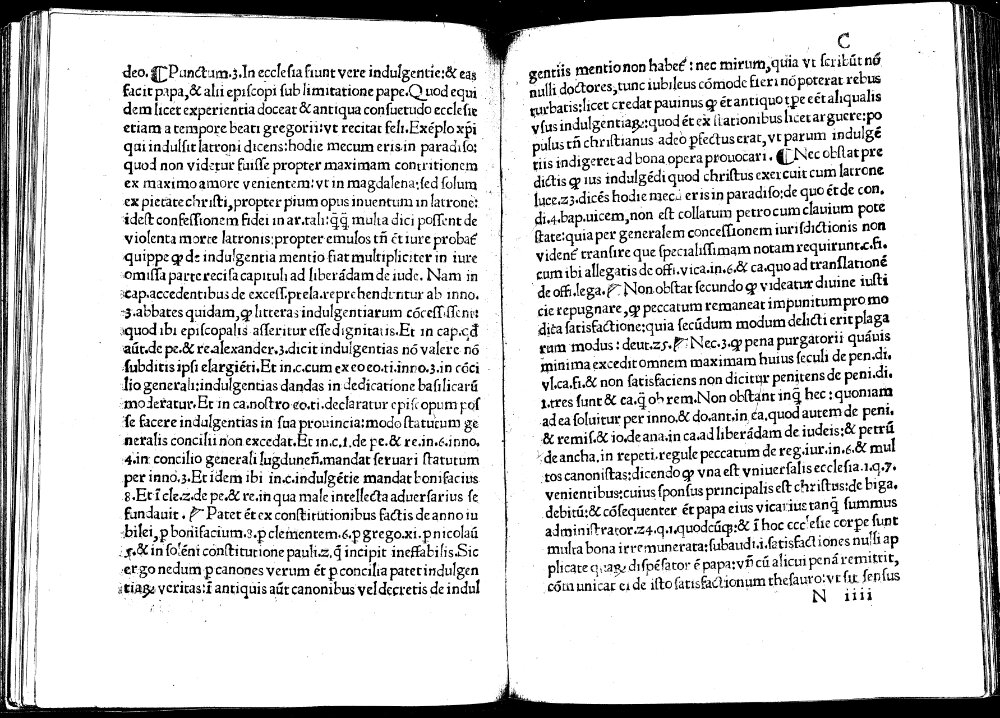 deo. ¶ Punctum.3.In ecclesia fiunt vere indulgentie:& eas
facit papa,& alii episcopi sub limitatione pape.Quod equi
dem licet experientia doceat & antiqua consuetudo ecclesie
etiam a tempore beati gregorii:vt recitat feli.Exēplo xp̄i
qui indulsit latroni dicens:hodie mecum eris in paradiso:
quod non videtur fuisse propter maximam contritionem
ex maximo amore venientem:vt in magdalena:sed solum
ex pietate christi,propter pium opus inuentum in latrone:
idest confessionem fidei in ar.tali:q̄q̄ multa dici possent de
violenta morte latronis:propter emulos tn̄ ēt iure probat̄
quippe ꝙ de indulgentia mentio fiat multipliciter in iure
omissa parte recisa capituli ad liberādam de iude. Nam in
cap.accedentibus de excess.prela.reprehenduntur ab inno.
3.abbates quidam,ꝙ litteras indulgentiarum cōcessissent:
quod ibi episcopalis asseritur esse dignitatis.Et in cap.qd̄
aūt.de pe.& re.alexander.3.dicit indulgentias nō valere nō
subditis ipsi elargiēti.Et in.c.cum ex eo eo.ti.inno.3.in cōci
lio generali:indulgentias dandas in dedicatione basilicarū
moderatur.Et in ca.nostro eo.ti.declaratur episcopum pos
se facere indulgentias in sua prouincia:modo statutum ge
neralis concilii non excedat.Et in.c.1.de pe.& re.in.6.inno.
4.in concilio generali lugduneñ.mandat seruari statutum
per inno.3.Et idem ibi in.c.indulgētie mandat bonifacius
8.Et ī cle.2.de pe.& re.in qua male intellecta aduersarius se
fundauit. ¶ Patet ēt ex constitutionibus factis de anno iu
bilei,p bonifacium.8.p clementem.6.p grego.xi.p nicolaū
5.& in solēni constitutione pauli.2.q̄ incipit ineffabilis.Sic
ergo nedum p canones verum ēt p concilia patet indulgen
tiaꝝ veritas:ī antiquis aūt canonibus vel decretis de indul
C
gentiis mentio non habet̄:nec mirum,quia vt scribūt nō
nulli doctores,tunc iubileus cōmode fieri nō poterat rebus
turbatis:licet credat pauinus ꝙ ēt antiquo tp̄e eēt aliqualis
vsus indulgentiaꝝ:quod ēt ex stationibus licet arguere:po
pulus tn̄ christianus adeo pfectus erat,vt parum indulgē
tiis indigeret ad bona opera prouocari. ¶ Nec obstat pre
dictis ꝙ ius indulgēdi quod christus exercuit cum latrone
luce.23.dicēs hodie mecū eris in paradiso:de quo ēt de con.
di.4.bap.uicem,non est collatum petro cum clauium pote
state:quia per generalem concessionem iurisdictionis non
videnť transire que specialissimam notam requirunt.c.fi.
cum ibi allegatis de offi.vica.in.6.& ca.quo ad translationē
de offi.lega. ¶ Non obstat secundo ꝙ videatur diuine iusti
cie repugnare,ꝙ peccatum remaneat impunitum pro mo
dica satisfactione:quia secūdum modum delicti erit plaga
rum modus:deut.25. ¶ Nec.3.ꝙ pena purgatorii quāuis
minima excedit omnem maximam huius seculi de pen.di.
vl.ca.fi.& non satisfaciens non dicitur penitens de peni.di.
1.tres sunt & ca.q̄ ob rem.Non obstant inq̄ hec:quoniam
ad ea soluitur per inno.& do.ant.in ca.quod autem de peni.
& remis.& io.de ana.in ca.ad liberādam de iudeis:& petrū
de ancha.in repeti.regule peccatum de reg.iur.in.6.& mul
tos canonistas:dicendo ꝙ vna est vniuersalis ecclesia.1.q.7.
venientibus:cuius sponsus principalis est christus:de biga.
debitū:& cōsequenter ēt papa eius vicarius tanq̄ summus
administrator.24.q.1.quodcūq̄:& ī hoc ecclesie corpe sunt
multa bona irremunerata:subaudi.i.satisfactiones nulli ap
plicate quaꝝ dispēsator ē papa:vñ cū alicui penā remittit,
cōmunicat ei de isto satisfactionum thesauro:vt sit sensus
N iiii